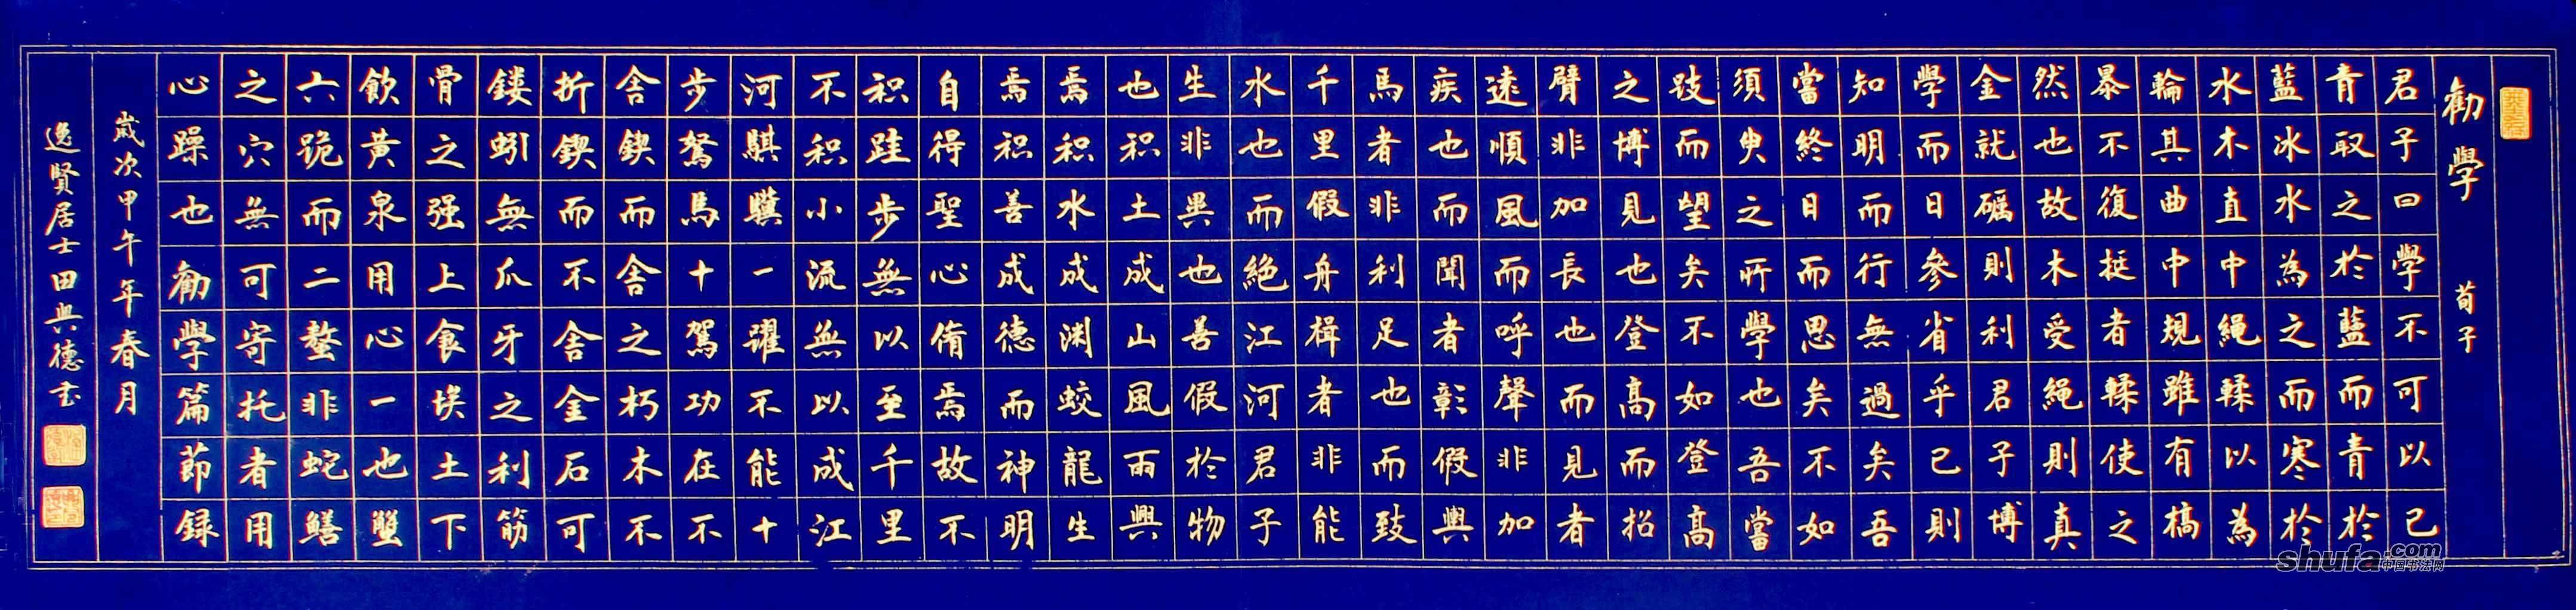 勧學 荀子
君子曰學不可以已
青取之於藍而青於
藍冰水為之而寒於
水木直中繩輮以為
輪其曲中規雖有槁
暴不復挺者輮使之
然也故木受繩則真
金就礪則利君子博
學而日參省乎已則
知明而行無過矣吾
當終日而思矣不如
須臾之所學也吾當
跂而望矣不如登高
之博見也登高而招
臂非加長也而見者
遠順風而呼聲非加
疾也而聞者彰假輿
馬者非利足也而致
千里假舟楫者非能
水也而絕江河君子
生非異也善假於物
也积土成山風雨興
焉积水成渊蛟龍生
焉积善成德而神明
自得聖心備焉故不
积跬步無以至千里
不积小流無以成江
河騏驥一躍不能十
步駑馬十駕功在不
舍鍥而舍之朽木不
折鍥而不舍金石可
鏤蚓無爪牙之利筋
骨之强上食埃土下
飲黃泉用心一也蟹
六跪而二螯非蛇鱔
之穴無可寄托者用
心躁也勧學篇節録
歲次甲午年春月
逸賢居士田興德書
shufa.com
中国书法网